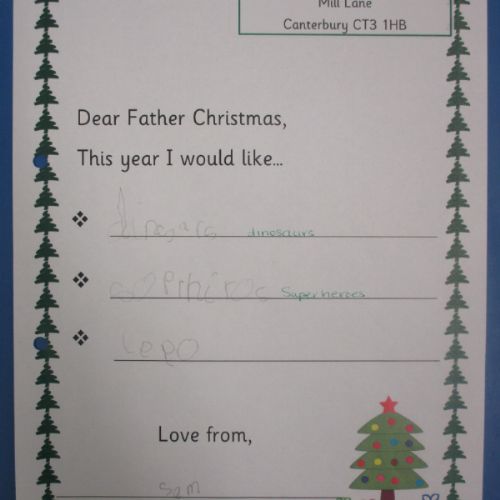 Mill Lane
Canterbury CT3 1HB
Dear Father Christmas,
This year I would like...
dinosars dinosaurs
soperhiros Superheroes
lego
Love from,
Sam